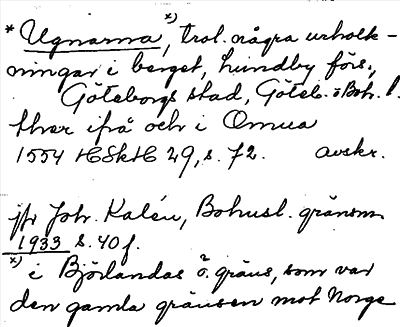 * Ugnarna, x) trol. några urholk-
ningar i berget, Lundby förs.,
Göteborgs stad, Göteb. o Boh. l.
ther ifrå och i Omua
1554 HSkH 29, s. 72. avskr.
jfr Joh. Kalén, Bohusl. gränsm
1933 s. 40 f.
x) i Björlandas ö. gräns, som var
den gamla gränsen mot Norge